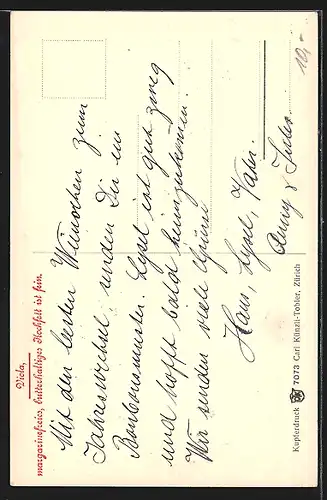 Viola,
margarinefreies, butterhaltiges Kochfett ist fein.
Mit den besten Wünschen zum
Jahreswechsel senden Dir ein
Bonbonsmuster. Lysel ist gut zweg
und hofft bald heimzukommen.
Wir senden viele Grüsse
Hans, Lysel, Vater.
Jenny & Jules.
10.-
Kupferdruck 7073 Carl Künzli-Tobler, Zürich